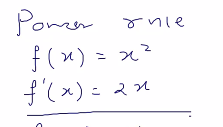 Power rule
f(x) = x²
f'(x) = 2x